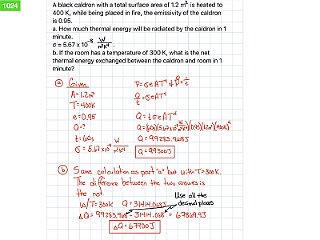 1024
A black caldron with a total surface area of 1.2 m² is heated to
400 K, while being placed in fire, the emissivity of the caldron
is 0.95.
a. How much thermal energy will be radiated by the caldron in 1
minute.
σ = 5.67 x 10⁻⁸ W/m²K⁴
b. If the room has a temperature of 300 K, what is the net
thermal energy exchanged between the caldron and room in 1
minute?
ⓐ Given
A=1.2m²
T=400K
e=0.95
Q=?
t=60s
σ = 5.67x10⁻⁸ W/m²K⁴
P=σeAT⁴
Q/t=σeAT⁴
Q=tσeAT⁴
Q=99283.968J
Q=99300J
ⓑ Same calculation as part "a" but with T=300K.
The difference between the two answers is
the net
w/T=300K Q=31414.068J
Use all the
decimal places
ΔQ=99283.968-31414.068=67869.93
ΔQ=67900J